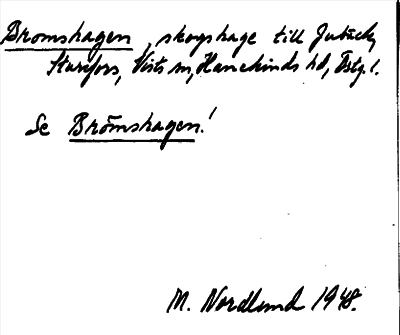 Bromshagen, skogshage till Jubäck,
Sturefors, Vists sn, Hanekinds hd, Östg.l.
Se Brömshagen!
M. Nordlund 1948.